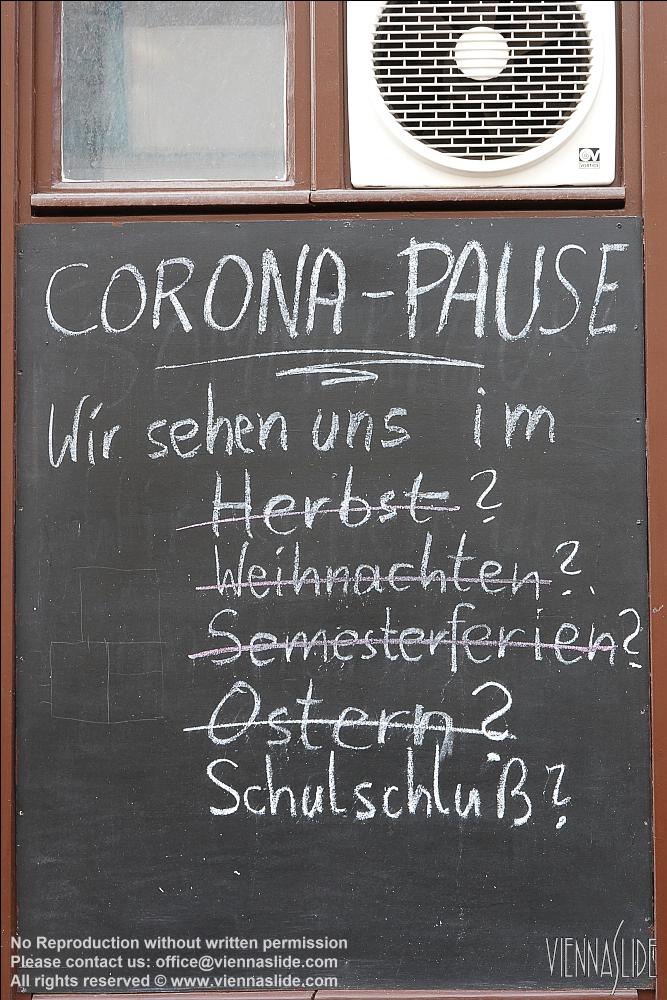 VORTICE
CORONA-PAUSE
Wir sehen uns im
Herbst?
Weihnachten?
Semesterferien?
Ostern?
Schulschluß?
No Reproduction without written permission
Please contact us: office@viennaslide.com
All rights reserved © www.viennaslide.com
VIENNASLIDE